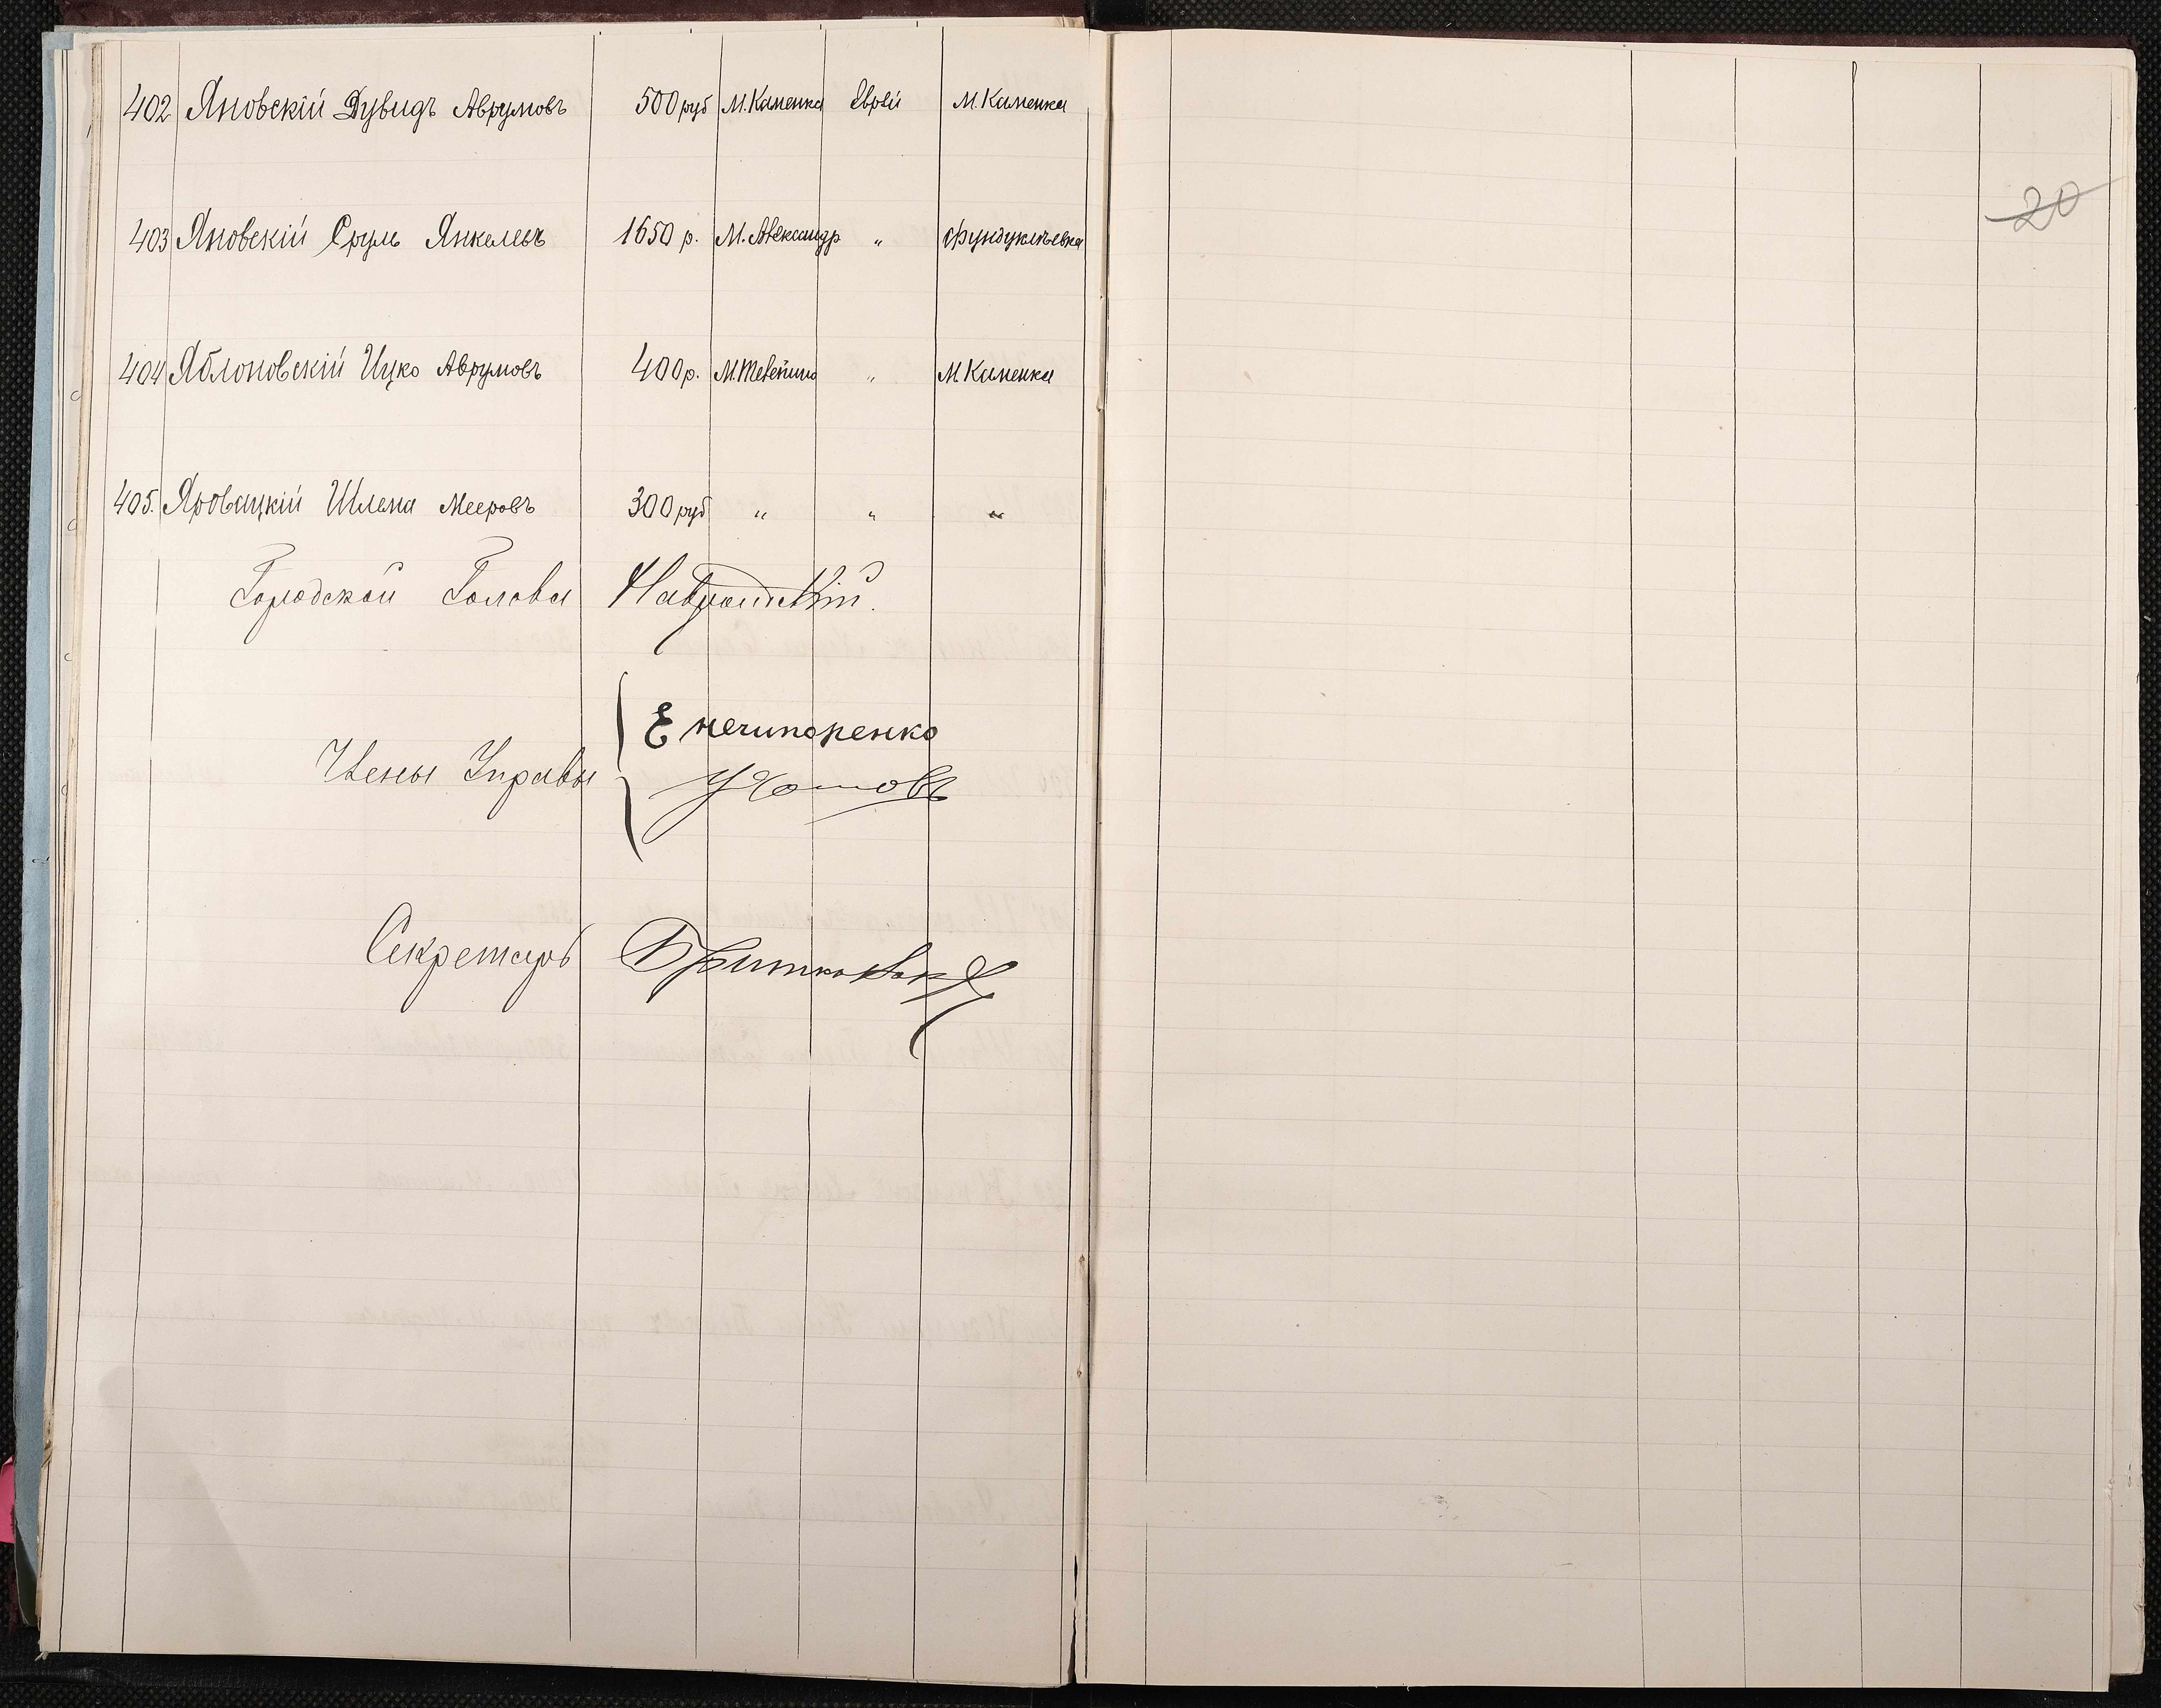 402 Яновскій Дувидъ Аврумовъ 500 руб М. Каменка Еврей М. Каменка
20
403 Яновскій Сруль Янкелевъ 1650 р. М. Александр " Фундуклѣевка
404 Яблоновскій Ицко Аврумовъ 400 р. " М Каменка
405. Яровицкій Шлема Мееровъ 300 руб " " "
Городской Голова
Е Нечипоренко
Члены Управы
Секретарь